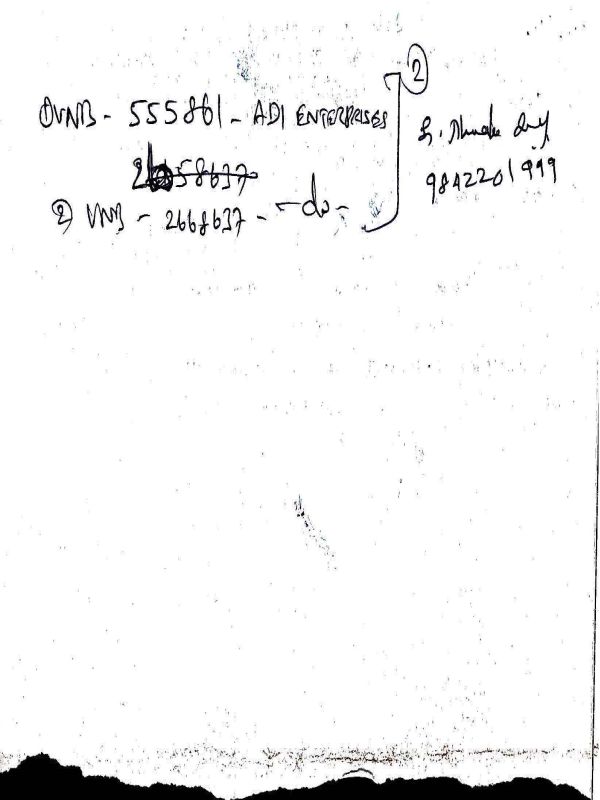 ② 
① VNB - 555861 - ADI ENTERPRISES
2658637
② VNB - 2668637 - - do -
9842201999